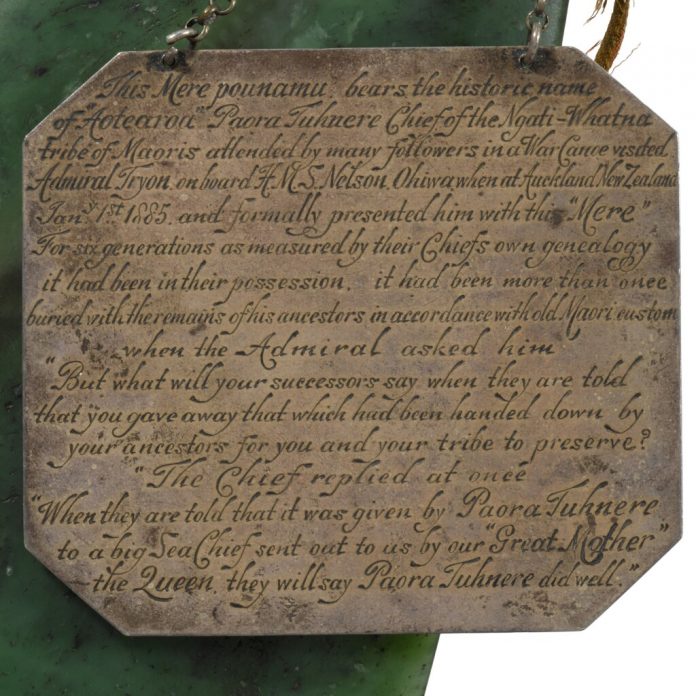 This Mere pounamu, bears the historic name
of "Aotearoa" Paora Tuhnere Chief of the Ngati-Whatna
tribe of Maoris attended by many followers in a War Canoe visited
Admiral Tryon, on board H.M.S. Nelson, Ohiwa, when at Auckland New Zealand
Jany. 1st 1885, and formally presented him with this "Mere"
For six generations as measured by their Chiefs own genealogy
it had been in their possession, it had been more than once
buried with the remains of his ancestors in accordance with old Maori custom
when the Admiral asked him
"But what will your successors say when they are told
that you gave away that which had been handed down by
your ancestors for you and your tribe to preserve?
"The Chief replied at once
"When they are told that it was given by Paora Tuhnere
to a big Sea Chief sent out to us by our "Great Mother"
the Queen, they will say Paora Tuhnere did well."